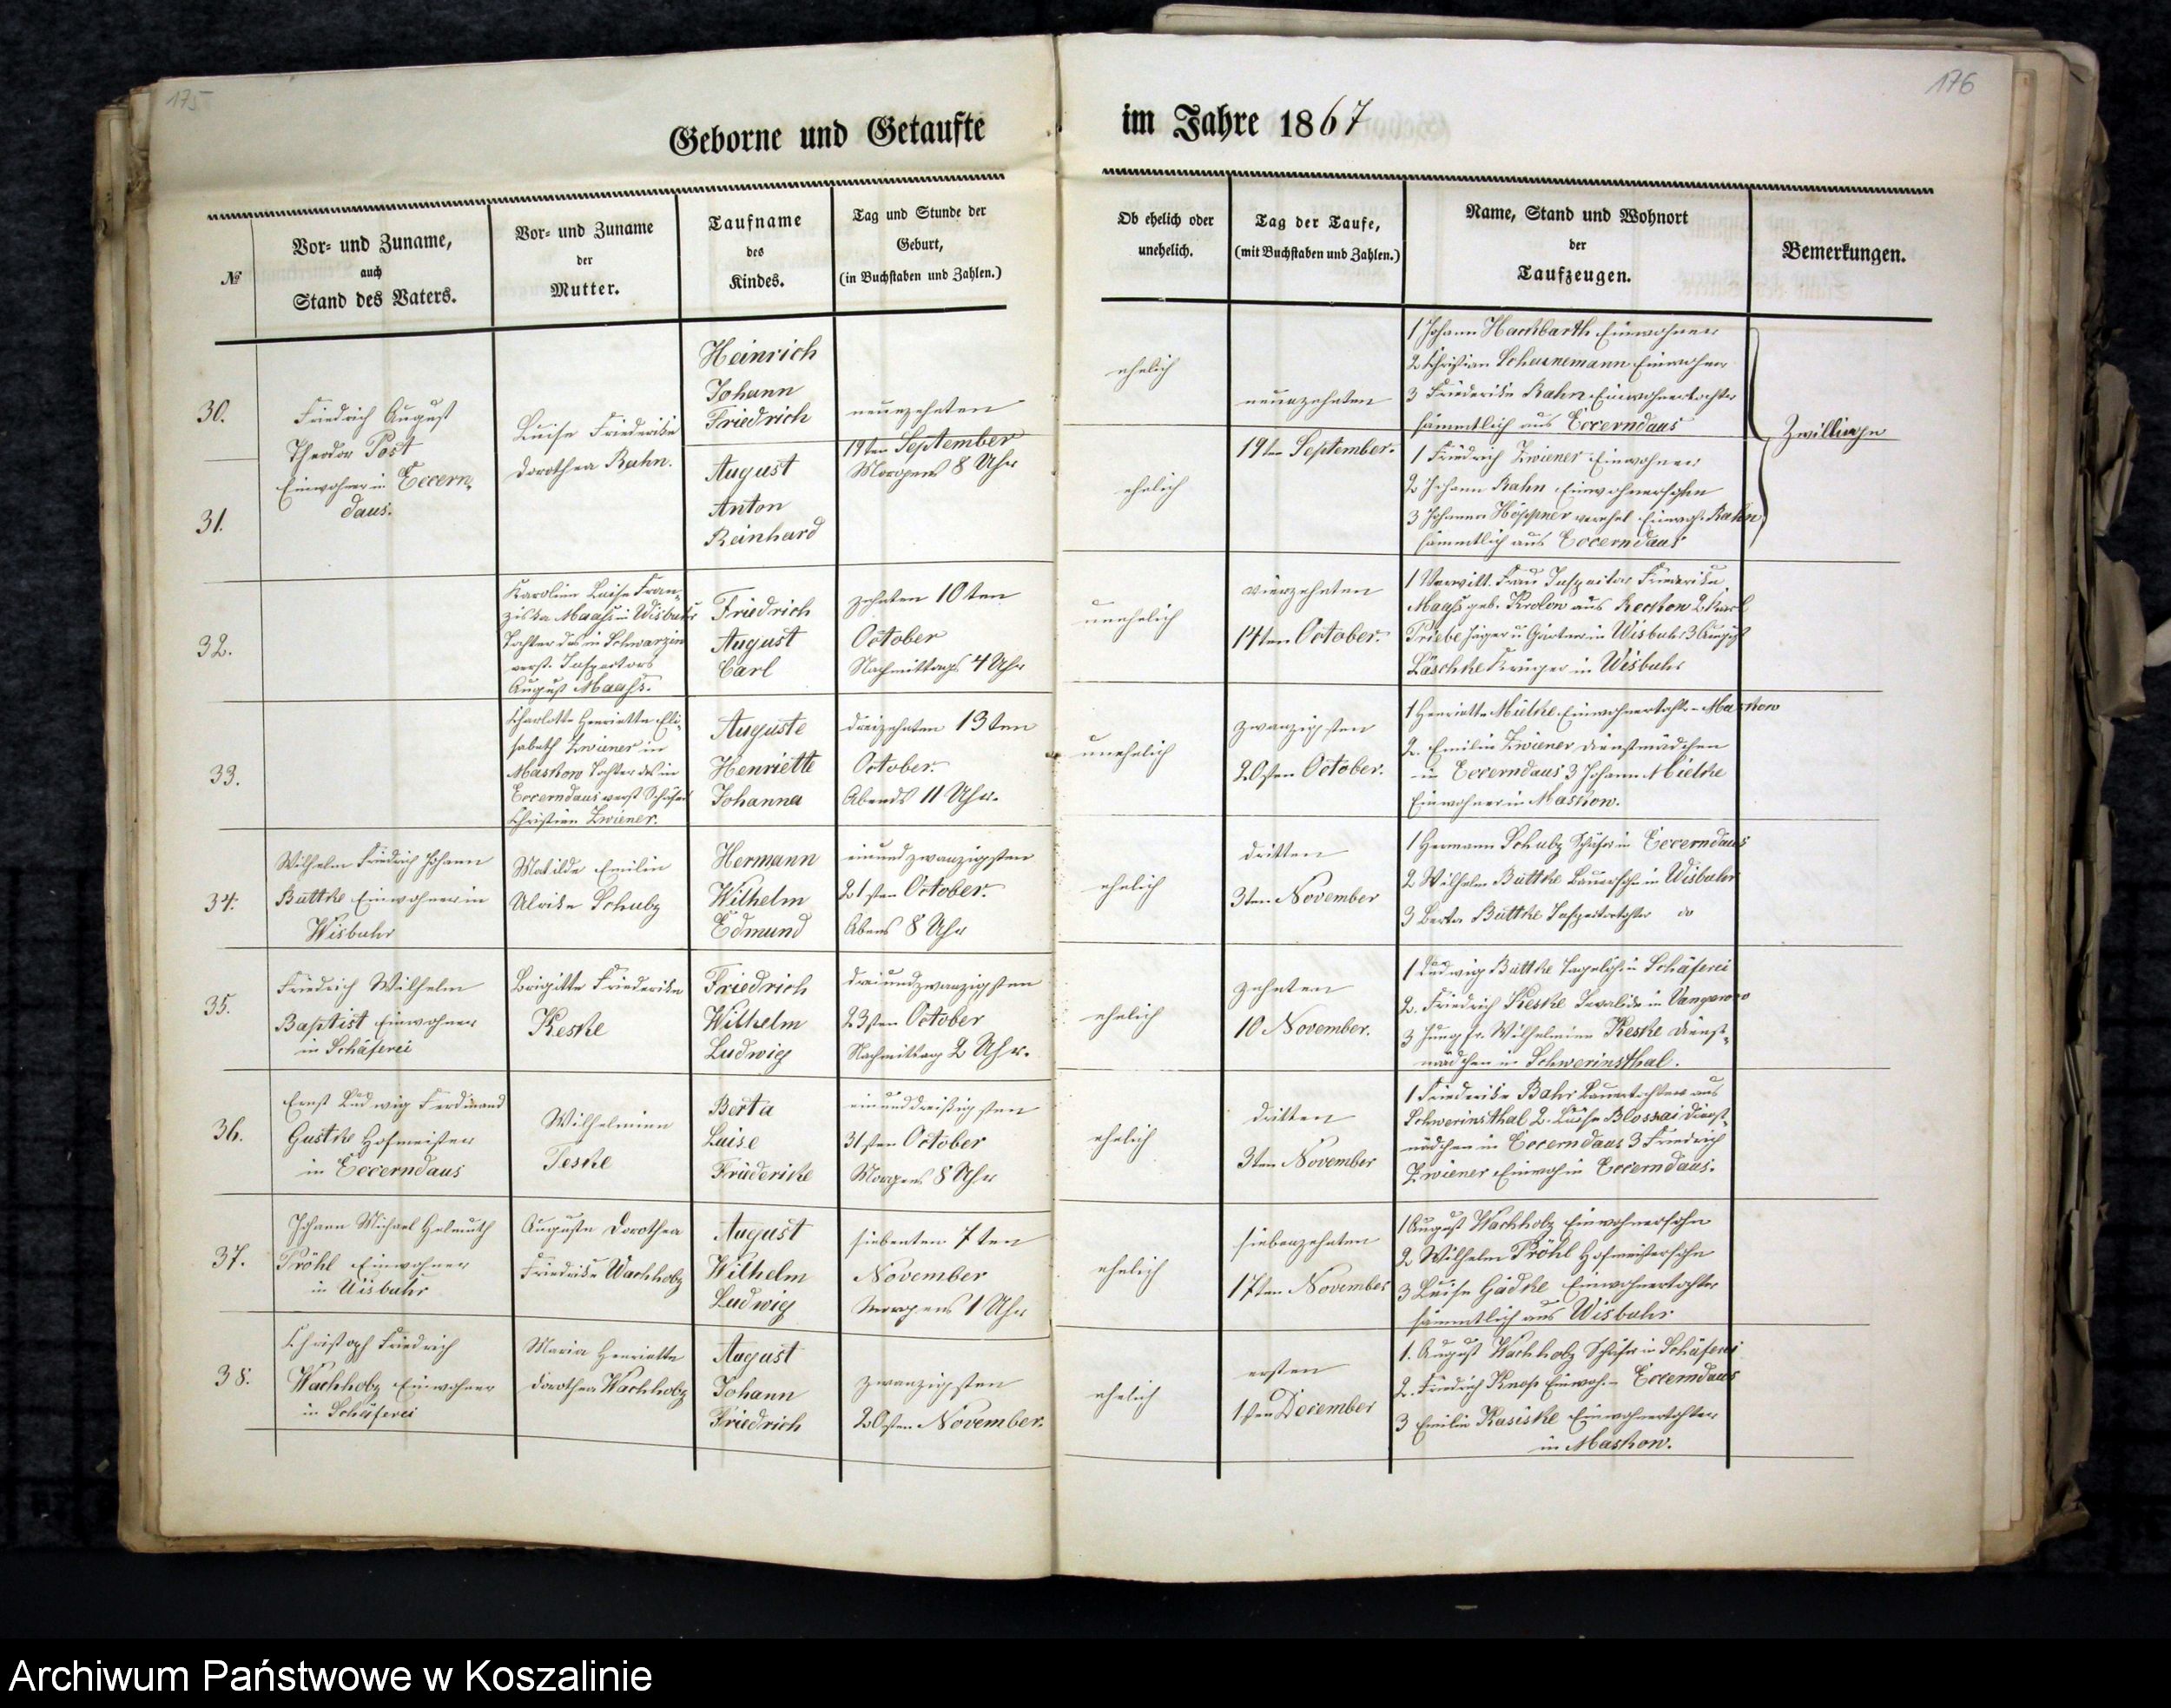 175
176
Geborne und Getaufte
im Jahre 1867
№
Vor- und Zuname,
auch
Stand des Vaters.
Vor- und Zuname
der
Mutter.
Taufname
des
Kindes.
Tag und Stunde der
Geburt,
(in Buchstaben und Zahlen.)
Ob ehelich oder
unehelich.
Tag der Taufe,
(mit Buchstaben und Zahlen.)
Name, Stand und Wohnort
der
Taufzeugen.
Bemerkungen.
30.
31.
Friedrich August
Theodor Post
Einwohner in Eccern-
daus.
Luise Friederike
Dorothea Rahn.
Heinrich
Johann
Friedrich
August
Anton
Reinhard
neunzehnten
19ten September
Morgens 8 Uhr
ehelich
ehelich
neunzehnten
19ten September.
1 Johann Hackbarth Einwohner
2 Christian Scheunemann Einwohner
3 Friederike Rahn Einwohnertochter
sämmtlich aus Eccerndaus
1 Friedrich Zwiener Einwohner
2 Johann Rahn Einwohnersohn
3 Johanna Höppner verehel. Einwoh. Rahn
sämmtlich aus Eccerndaus
Zwillinge
32.
Karoline Luise Fran-
ziska Maaß in Wisbuhr
Tochter des in Schwarzin
verst. Inspectors
August Maaß.
Friedrich
August
Carl
zehnten 10ten
October
Nachmittags 4 Uhr
unehelich
vierzehnten
14ten October.
1 Verwitt. Frau Inspector Friederike
Maaß geb. Krolow aus Reckow 2 Karl
Priebe Jäger u Gärtner in Wisbuhr 3 August
Läschke Krüger in Wisbuhr
33.
Charlotte Henriette Eli-
sabeth Zwiener in
Maskow Tochter des in
Eccerndaus verst Schäfers
Christian Zwiener.
Auguste
Henriette
Johanna
dreizehnten 13ten
October.
Abends 11 Uhr.
unehelich
zwanzigsten
20sten October.
1 Henriette Mielke Einwohnertocht. Maskow
2. Emilie Zwiener Dienstmädchen
in Eccerndaus 3 Johann Mielke
Einwohner in Maskow.
34.
Wilhelm Friedrich Johann
Buttke Einwohner in
Wisbuhr
Matilde Emilie
Ulrike Schulz
Hermann
Wilhelm
Edmund
einundzwanzigsten
21sten October.
Abens 8 Uhr
ehelich
dritten
3ten November
1 Hermann Schulz Schäfer in Eccerndaus
2 Wilhelm Büttke Bauersohn in Wisbuhr
3 Berta Büttke do
35.
Friedrich Wilhelm
Baptist Einwohner
in Schäferei
Brigitte Friederike
Keske
Friedrich
Wilhelm
Ludwig
dreiundzwanzigsten
23sten October
Nachmittag 2 Uhr.
ehelich
zehnten
10 November.
1 Ludwig Büttke Tagelöh in Schäferei
2. Friedrich Keske Invalide in Vangerow
3 Jungfr. Wilhelmine Keske Dienst-
mädchen in Schwerinsthal.
36.
Ernst Ludwig Ferdinand
Gustke Hofmeister
in Eccerndaus
Wilhelmine
Teske
Berta
Luise
Friederike
einunddreißigsten
31sten October
Morgens 8 Uhr
ehelich
dritten
3ten November
1 Friederike Bahr Bauertochter aus
Schwerinsthal 2. Luise Blossai Dienst-
mädchen in Eccerndaus 3 Friedrich
Zwiener Einwoh in Eccerndaus.
37.
Johann Michael Helmuth
Pröhl Einwohner
in Wisbuhr
Auguste Dorothea
Friedrike Wachholz
August
Wilhelm
Ludwig
siebenten 7ten
November
Morgens 1 Uhr
ehelich
siebenzehnten
17ten November
1 August Wachholz Einwohnersohn
2 Wilhelm Pröhl Hofmeistersohn
3 Luise Gädke Einwohnertochter
sämmtlich aus Wisbuhr
38.
Christoph Friedrich
Wachholz Einwohner
in Schäferei
Maria Henriette
Dorothea Wachholz
August
Johann
Friedrich
zwanzigsten
20sten November.
ehelich
ersten
1sten December
1. August Wachholz Schäfer in Schäferei
2. Friedrich Knop Einwoh. Eccerndaus
3 Emilie Kasiske Einwohnertochter
in Maskow.
Archiwum Państwowe w Koszalinie